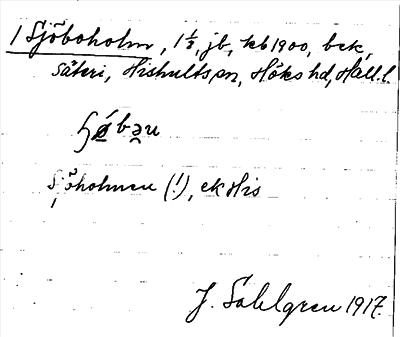 1 Sjöboholm, 1 1/2, jb, kb 1900, bek,
säteri, Hishults sn, Höks hd, Hall. l.
Sjöholmen (!), ek His
J. Sahlgren 1917.